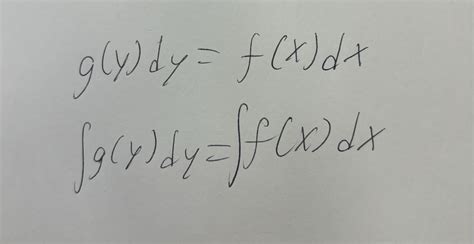 g(y)dy = f(x)dx
∫g(y)dy=∫f(x)dx